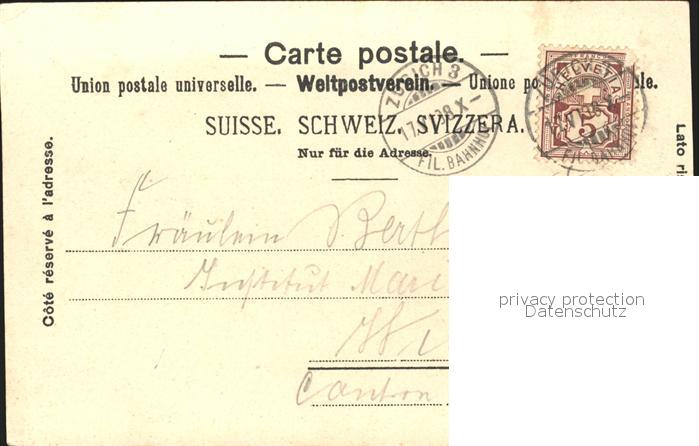 — Carte postale. —
Union postale universelle. — Weltpostverein. — Unione po le.
SUISSE. SCHWEIZ. SVIZZERA.
Nur für die Adresse.
Côté réservé à l'adresse.
Lato ris
ZÜRICH 3
FIL. BAHNHOF
HELVETIA
5
Fräulein
Institut Mari
Canton
privacy protection
Datenschutz